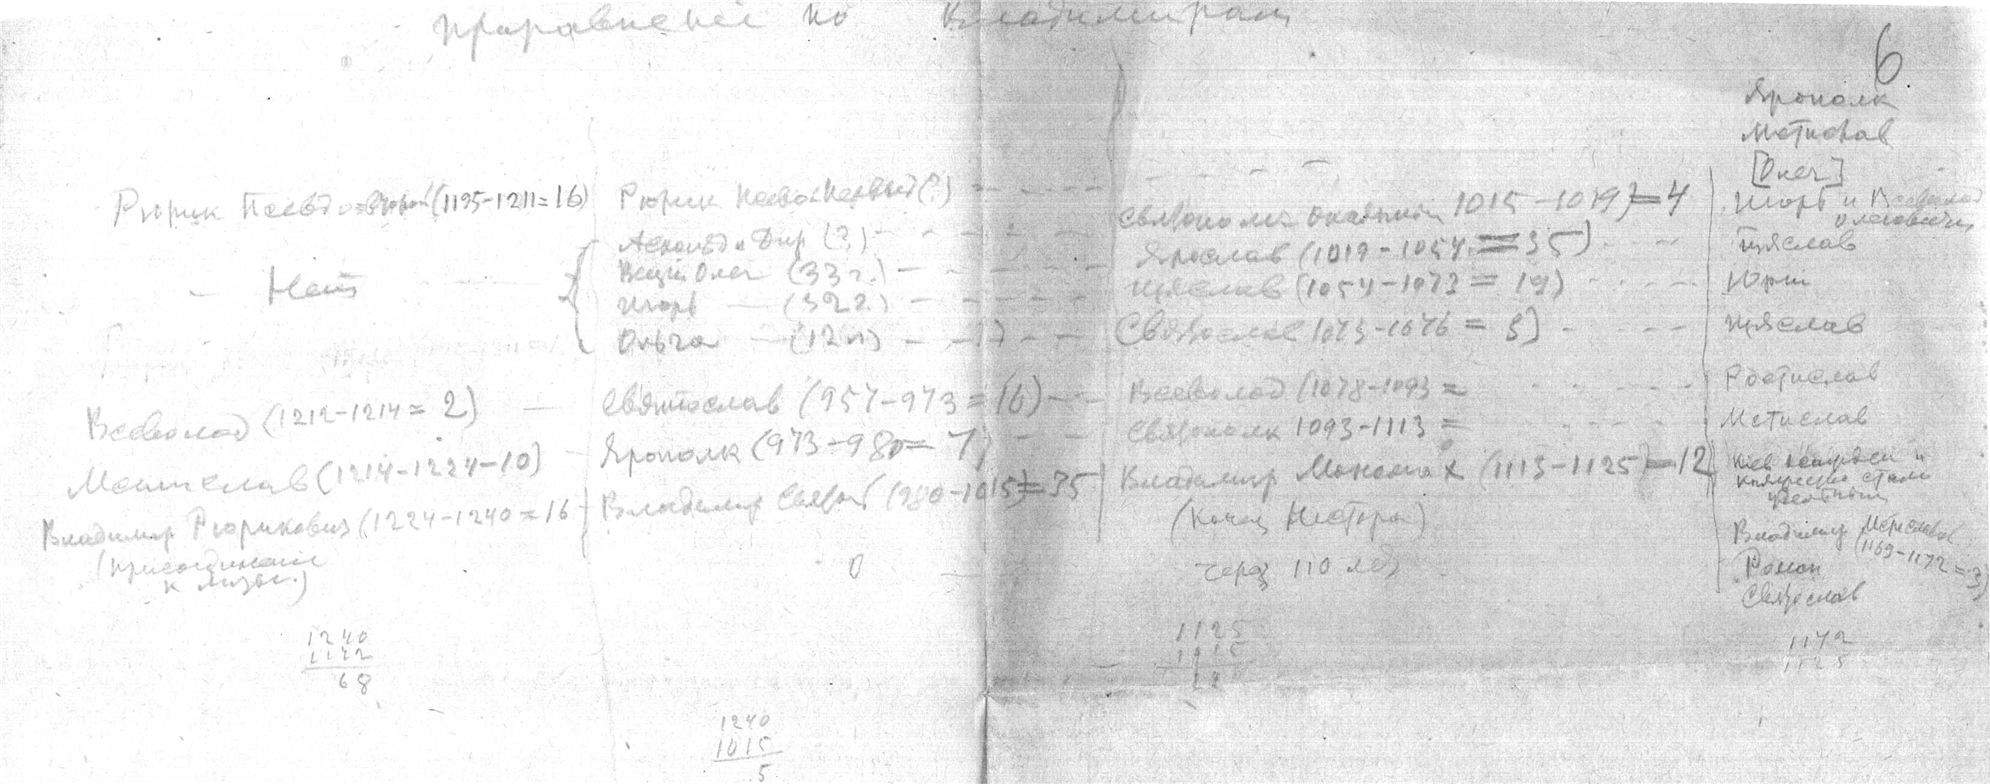 по Владимирам
6
Ярополк
Мстислав
[Олег]
Рюрик Псевдо-Второй (1195-1211=16)
Рюрик Первый (?)
Святополк Окаянный 1015-1019)=4
Игорь и Всеволод
Ольговичи
Аскольд и Дир (?)
Ярослав (1019-1054=35)
Изяслав
Нет
Вещий Олег (33 г.)
Изяслав (1054-1073=19)
Юрий
Игорь (32 г.)
Ольга (12 л)
Святослав 1073-1076=3)
Изяслав
Всеволод (1212-1214=2)
Святослав (957-973=16)
Всеволод (1078-1093=
Ростислав
Мстислав (1214-1224-10)
Ярополк (973-980=7)
Святополк 1093-1113=
Мстислав
Владимир Рюрикович (1224-1240=16
Владимир Святой (980-1015)=35
Владимир Мономах (1113-1125)=12
Киев и
стали
(Конец Нестора)
(присоединение
к )
0
через 110 лет
Владимир Мстиславов
(1169-1172=3)
Роман
Святослав
1240
1172
68
1125
1015
1172
1125
1240
1015
5